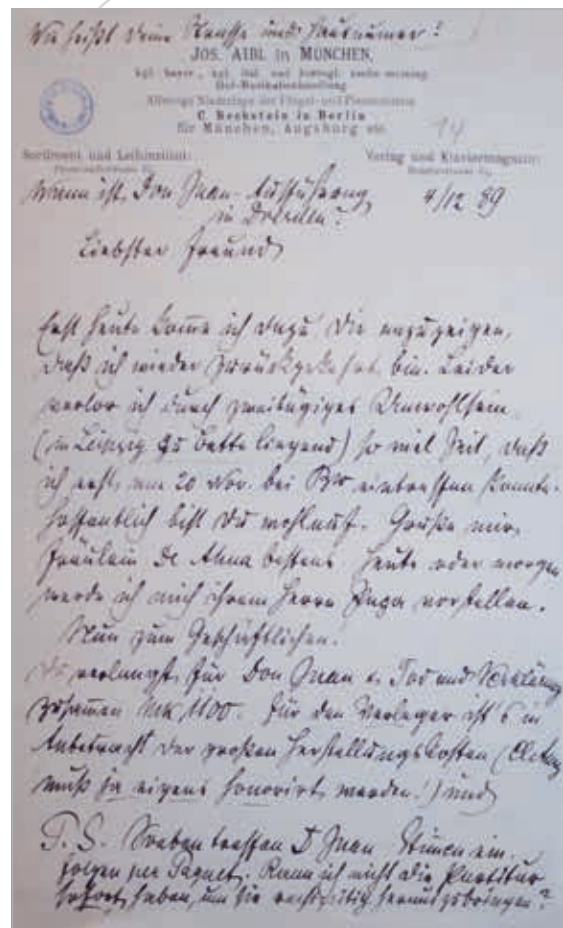 Wie heißt Deine Straße und Hausnumer?
JOS. AIBL in MÜNCHEN,
kgl. bayer., kgl. ital. und herzogl. sachs. meining.
Hof-Musikalienhandlung
Alleinige Niederlage der Flügel und Pianinos von
C. Bechstein in Berlin
für München, Augsburg etc.
14
Sortiment und Leihinstitut:
Verlag und Klaviermagazin:
Wann ist Don Juan-Aufführung
in Dresden?
4/12 89
Liebster Freund
Erst heute komme ich dazu Dir anzuzeigen,
daß ich wieder zurückgekehrt bin. Leider
verlor ich durch zweitägiges Unwohlsein
(in Leipzig zu Bette liegend) so viel Zeit, daß
ich erst am 20 Nov. bei eintreffen konnte.
Hoffentlich bist Du wohlauf. Grüße mir
Fräulein de Ahna bestens heute oder morgen
werde ich mich ihrem Herrn Papa vorstellen.
Nun zum Geschäftlichen.
Du verlangst für Don Juan & Tod und Verklärung
zusamen Mk 1100. Für den Verleger ist es in
Anbetracht der großen Herstellungskosten (
muß ja eigens honorirt werden!) und
P.S. Soeben treffen D Juan Stimen ein,
folgen per Paquet. Kann ich nicht die Partitur
sofort haben, um sie rechtzeitig herauszubringen?